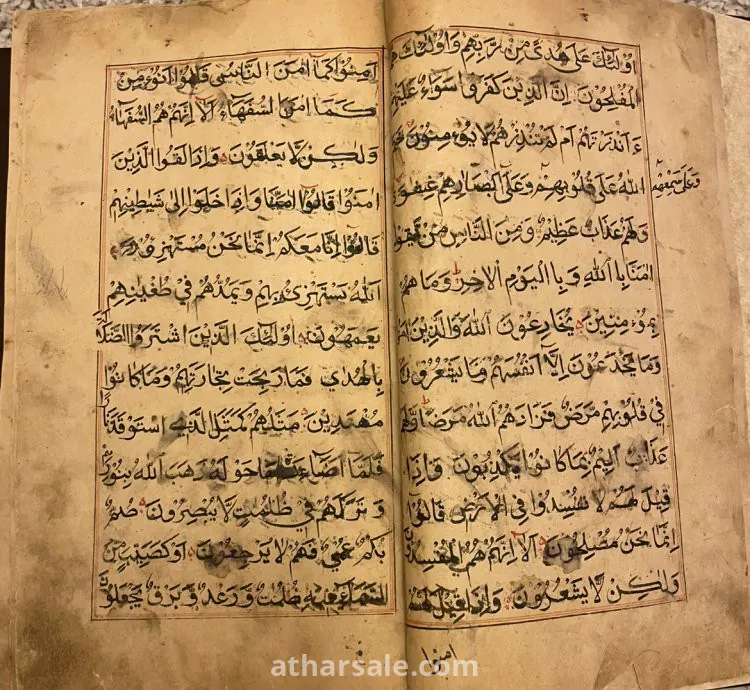 اولئك على هدى من ربهم واولئك هم
المفلحون ان الذين كفروا سواء عليهم
ءانذرتهم ام لم تنذرهم لا يؤمنون ختم
الله على قلوبهم وعلى ابصارهم غشوة
وعلى سمعهم
ولهم عذاب عظيم ومن الناس من يقول
امنا بالله وباليوم الاخر وما هم
بمؤمنين يخادعون الله والذين امنوا
وما يخدعون الا انفسهم وما يشعرون
في قلوبهم مرض فزادهم الله مرضا ولهم
عذاب اليم بما كانوا يكذبون واذا
قيل لهم لا تفسدوا في الارض قالوا
انما نحن مصلحون الا انهم هم المفسدون
ولكن لا يشعرون واذا قيل لهم
امنوا
امنوا كما امن الناس قالوا انؤمن
كما امن السفهاء الا انهم هم السفهاء
ولكن لا يعلمون واذا لقوا الذين
امنوا قالوا امنا واذا خلوا الى شيطينهم
قالوا انا معكم انما نحن مستهزؤن
الله يستهزئ بهم ويمدهم في طغينهم
يعمهون اولئك الذين اشتروا الضللة
بالهدى فما ربحت تجارتهم وما كانوا
مهتدين مثلهم كمثل الذي استوقد نارا
فلما اضاءت ما حوله ذهب الله بنورهم
وتركهم في ظلمت لا يبصرون صم
بكم عمي فهم لا يرجعون او كصيب من
السماء فيه ظلمت ورعد وبرق يجعلون
atharsale.com